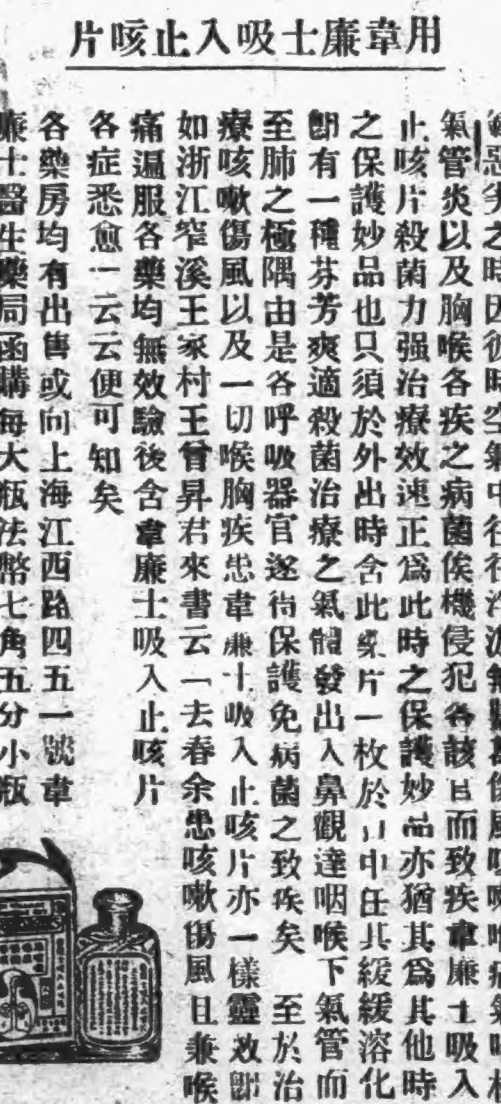 用韋廉士吸入止咳片
惡劣之時因彼時空氣中往往
氣管炎以及胸喉各疾之病菌俟機侵犯各該目而致疾韋廉士吸入
止咳片殺菌力强治療效速正爲此時之保護妙品亦猶其爲其他時
之保護妙品也只須於外出時含此藥片一枚於口中任其緩緩溶化
卽有一種芬芳爽適殺菌治療之氣體發出入鼻觀達咽喉下氣管而
至肺之極隅由是各呼吸器官遂得保護免病菌之致疾矣 至於治
療咳嗽傷風以及一切喉胸疾患韋廉士吸入止咳片亦一樣靈效卽
如浙江窄溪王家村王曾昇君來書云「去春余患咳嗽傷風且兼喉
痛遍服各藥均無效驗後含韋廉士吸入止咳片
各症悉愈」云云便可知矣
各藥房均有出售或向上海江西路四五一號韋
廉士醫生藥局函購每大瓶法幣七角五分小瓶